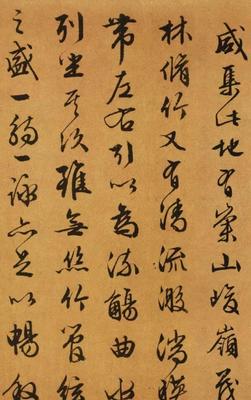 咸集此地有崇山峻嶺茂
林脩竹又有清流激湍暎
帶左右引以為流觴曲水
列坐其次雖無絲竹管弦
之盛一觴一詠亦足以暢敘